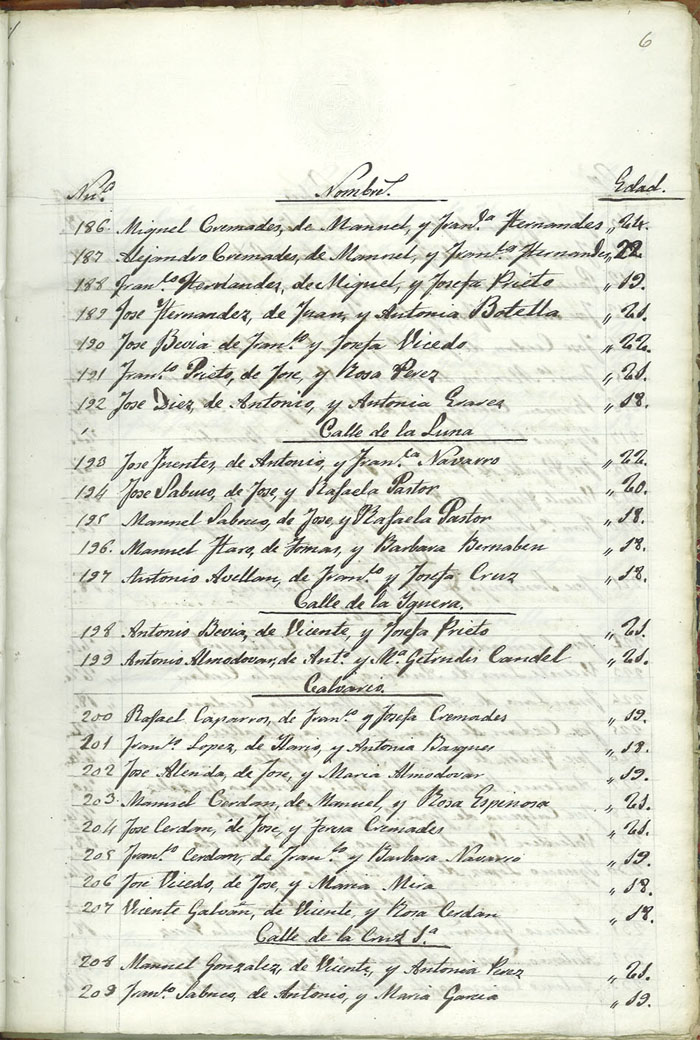 6
Nu.º Nombres. Edad.
186 Miguel Cremades, de Manuel, y Fran.ca Hernandes „ 24.
187 Alejandro Cremades, de Manuel, y Fran.ca Hernandez „ 22.
188 Fran.co Hernandez, de Miguel, y Josefa Prieto „ 19.
189 Jose Hernandez, de Juan, y Antonia Botella „ 21.
190 Jose Bevia de Fran.co y Josefa Vicedo „ 22.
191 Fran.co Prieto, de Jose, y Rosa Perez „ 21.
192 Jose Diez, de Antonio, y Antonia „ 18.
Calle de la Luna
193 Jose Fuentes, de Antonio, y Fran.ca Navarro „ 22.
194 Jose Sabuco, de Jose, y Rafaela Pastor „ 20.
195 Manuel Sabuco, de Jose, y Rafaela Pastor „ 18.
196 Manuel Haro, de Tomas, y Barbara Bernabeu „ 18.
197 Antonio Avellan, de Fran.co y Josefa Cruz „ 18.
Calle de la Yguera.
198 Antonio Bevia, de Vicente, y Josefa Prieto „ 21.
199 Antonio Almodovar, de Ant.º y M.ª Getrudis Candel „ 21.
Calvario.
200 Rafael Caparros, de Fran.co y Josefa Cremades „ 19.
201 Fran.co Lopez, de Ilario, y Antonia Barques „ 18.
202 Jose Alenda, de Jose, y Maria Almodovar „ 19.
203 Manuel Cerdan, de Manuel, y Rosa Espinosa „ 21.
204 Jose Cerdan, de Jose, y Teresa Cremades „ 21.
205 Fran.co Cerdan, de Fran.co y Barbara Navarro „ 19.
206 Jose Vicedo, de Jose, y Maria Mira „ 18.
207 Vicente Galvañ, de Vicente, y Rosa Cerdan „ 18.
Calle de la Cruz 1.ª
208 Manuel Gonzalez, de Vicente, y Antonia Perez „ 21.
209 Fran.co Sabuco, de Antonio, y Maria Garcia „ 19.